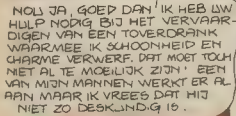 NOU JA, GOED DAN! IK HEB UW
HULP NODIG BIJ HET VERVAAR-
DIGEN VAN EEN TOVERDRANK
WAARMEE IK SCHOONHEID EN
CHARME VERWERF. DAT MOET TOCH
NIET AL TE MOEILIJK ZIJN! EEN
VAN MIJN MANNEN WERKT ER AL
AAN MAAR IK VREES DAT HIJ
NIET ZO DESKUNDIG IS.